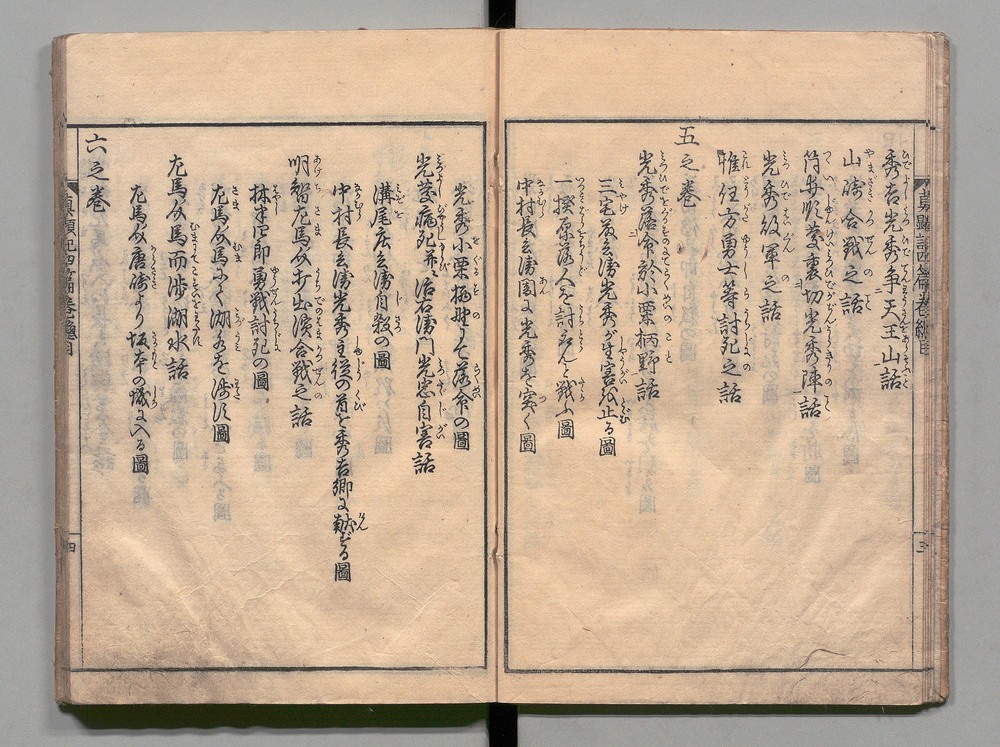 秀吉光秀争天王山話
山崎合戦之話
筒井順慶裏切光秀陣話
光秀敗軍之話
惟任方勇士等討死之話
五之巻
光秀落命於小栗栖野話
三宅 光秀が生害を止る圖
一揆原落人を討んと戦ふ圖
中村長兵衛闇に光秀を突く圖
光秀小栗栖野にて落命の圖
光慶病死并 光忠自害話
溝尾庄兵衛自殺の圖
中村長兵衛光秀主従の首を秀吉卿に献ずる圖
明智左馬助打出濱合戦之話
林 四郎勇戦討死の圖
左馬助馬にて湖水を渉す圖
左馬助馬而渉湖水話
左馬助唐崎より坂本の城に入る圖
六之巻
真顕記四篇巻之總目
三
四